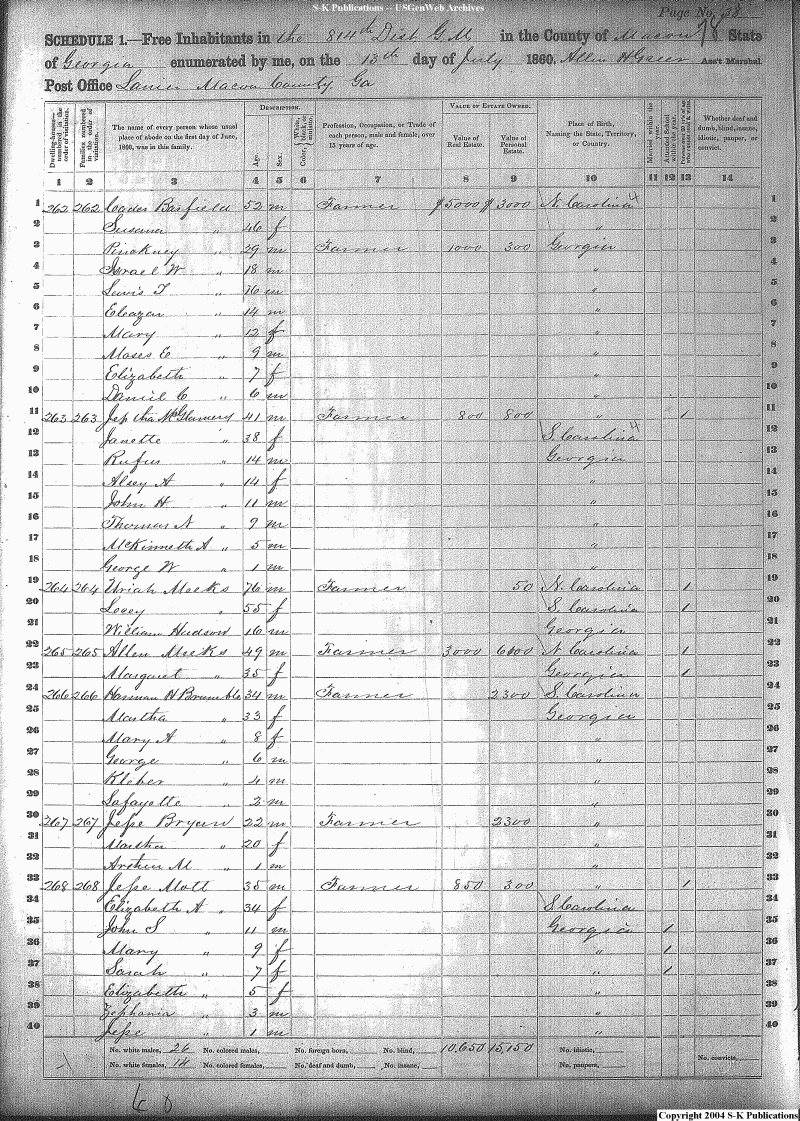 S-K Publications -- USGenWeb Archives
Page No. 78
SCHEDULE 1.—Free Inhabitants in the 814th Dist G.M in the County of Macon State
of Georgia enumerated by me, on the 13th day of July 1860. Allen H Greer Ass't Marshal.
Post Office Lanier Macon County Ga
Dwelling-houses—numbered in the order of visitation.
Families numbered in the order of visitation.
The name of every person whose usual place of abode on the first day of June, 1860, was in this family.
DESCRIPTION.
Age.
Sex.
Color, White, black, or mulatto.
Profession, Occupation, or Trade of each person, male and female, over 15 years of age.
VALUE OF ESTATE OWNED.
Value of Real Estate.
Value of Personal Estate.
Place of Birth, Naming the State, Territory, or Country.
Married within the year.
Attended School within the year.
Whether deaf and dumb, blind, insane, idiotic, pauper, or convict.
1 2 3 4 5 6 7 8 9 10 11 12 13 14
1 262 262 Cader Barfield 52 m Farmer $5000 $3000 N. Carolina 4 1
2 Susana " 46 f 2
3 Pinckney " 29 m Farmer 1000 300 Georgia 3
4 Israel W " 18 m " 4
5 Lewis T " 16 m " 5
6 Eleazar " 14 m " 6
7 Mary " 12 f " 7
8 Moses E " 9 m " 8
9 Elizabeth " 7 f " 9
10 Daniel C " 6 m " 10
11 263 263 Jeptha McGlamery 41 m Farmer 800 800 " 1 11
12 Janette " 38 f S. Carolina 4 12
13 Rufus " 14 m Georgia 13
14 Alsey A " 14 f " 14
15 John H " 11 m " 15
16 Thomas N " 9 m " 16
17 McKinneth A " 5 m " 17
18 George W " 1 m " 18
19 264 264 Uriah Meeks 76 m Farmer 50 N. Carolina 1 19
20 Locey " 55 f S. Carolina 1 20
21 William Hudson 16 m Georgia 21
22 265 265 Allen Meeks 49 m Farmer 3000 6000 N Carolina 1 22
23 Margaret " 35 f Georgia 1 23
24 266 266 Harman H Brumble 34 m Farmer 2300 S. Carolina 24
25 Martha " 33 f Georgia 25
26 Mary A " 8 f " 26
27 George " 6 m " 27
28 Kleber " 4 m " 28
29 Lafayette " 2 m " 29
30 267 267 Jesse Bryan 22 m Farmer 2300 " 30
31 Martha " 20 f " 31
32 Arthur M " 1 m " 32
33 268 268 Jesse Mott 35 m Farmer 850 300 " 1 33
34 Elizabeth A " 34 f S. Carolina 34
35 John S " 11 m Georgia 1 35
36 Mary " 9 f " 1 36
37 Sarah " 7 f " 1 37
38 Elizabeth " 5 f " 38
39 Zephania " 3 m " 39
40 Jesse " 1 m " 40
No. white males, 26 No. colored males, No. foreign born, No. blind, 10,650 15,150 No. idiotic,
No. white females, 14 No. colored females, No. deaf and dumb, No. insane, No. paupers, No. convicts,
Copyright 2004 S-K Publications